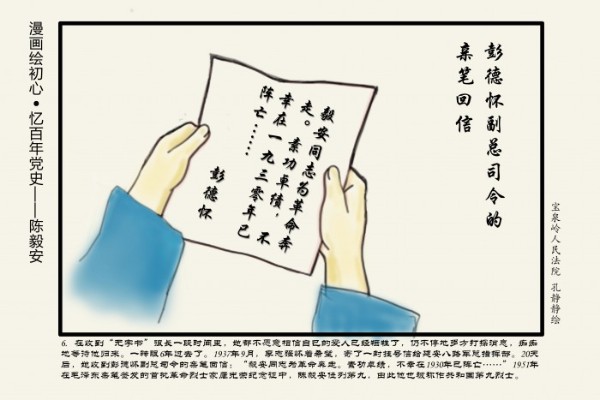 漫画绘初心•忆百年党史——陈毅安
彭德怀副总司令的
亲笔回信
毅安同志为革命奔
走。素功卓绩,不
幸在一九三零年已
阵亡……
彭德怀
宝泉岭人民法院 孔静静绘
6. 在收到“无字书”很长一段时间里,她都不愿意相信自己的爱人已经牺牲了,仍不停地多方打探消息,痴痴
地等待他归来。一转眼6年过去了。1937年9月,李志强怀着希望,寄了一封挂号信给延安八路军总指挥部。20天
后,她收到彭德怀副总司令的亲笔回信:“毅安同志为革命奔走。素功卓绩,不幸在1930年已阵亡……”1951年
在毛泽东亲笔签发的首批革命烈士家属光荣纪念证中,陈毅安位列第九,由此他也被称作共和国第九烈士。